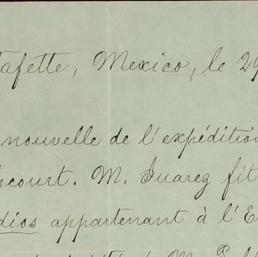 afette, Mexico, le 29
nouvelle de l'expédition
court. M. Juarez fit
dios appartenant à l'E